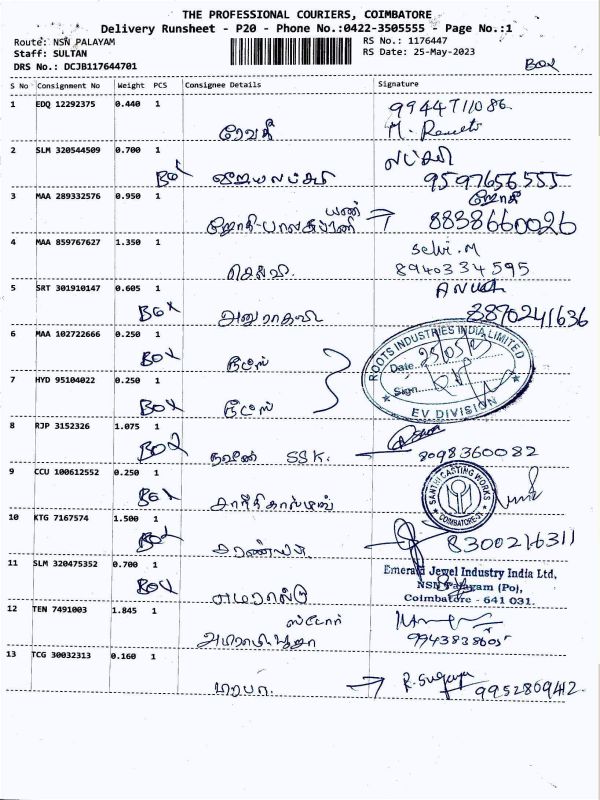 THE PROFESSIONAL COURIERS, COIMBATORE
Delivery Runsheet - P20 - Phone No.:0422-3505555 - Page No.:1
Route: NSN PALAYAM
RS No.: 1176447
Staff: SULTAN
RS Date: 25-May-2023
DRS No.: DCJB117644701
BOX
S No Consignment No Weight PCS Consignee Details Signature
1 EDQ 12292375 0.440 1 9944711086
ரேவதி M.
2 SLM 320544509 0.700 1 லட்சுமி
BOX விஜயலட்சுமி 9597656555
3 MAA 289332576 0.950 1 ஜோதி
ஜோதி-பாலசுப்ரமணி 8838660026
4 MAA 859767627 1.350 1 Selvi.M
செல்வி 8940334595
5 SRT 301910147 0.605 1
BOX 8870241636
6 MAA 102722666 0.250 1 ROOTS INDUSTRIES INDIA LIMITED
BOX ரூட்ஸ் Date 25/05/23
7 HYD 95104022 0.250 1 Sign
BOX ரூட்ஸ் EV DIVISION
8 RJP 3152326 1.075 1
BOX SSK. 8098360082
9 CCU 100612552 0.250 1 SANTHI CASTING WORKS
BOX COIMBATORE
10 KTG 7167574 1.500 1
BOX சரண்யா 8300216311
11 SLM 320475352 0.700 1 Emerald Jewel Industry India Ltd,
BOX NSN Palayam (Po),
எமரால்டு Coimbatore - 641 031.
12 TEN 7491003 1.845 1 ஸ்டோர்
9943838605
13 TCG 30032313 0.160 1
R. Suganya 9952869412